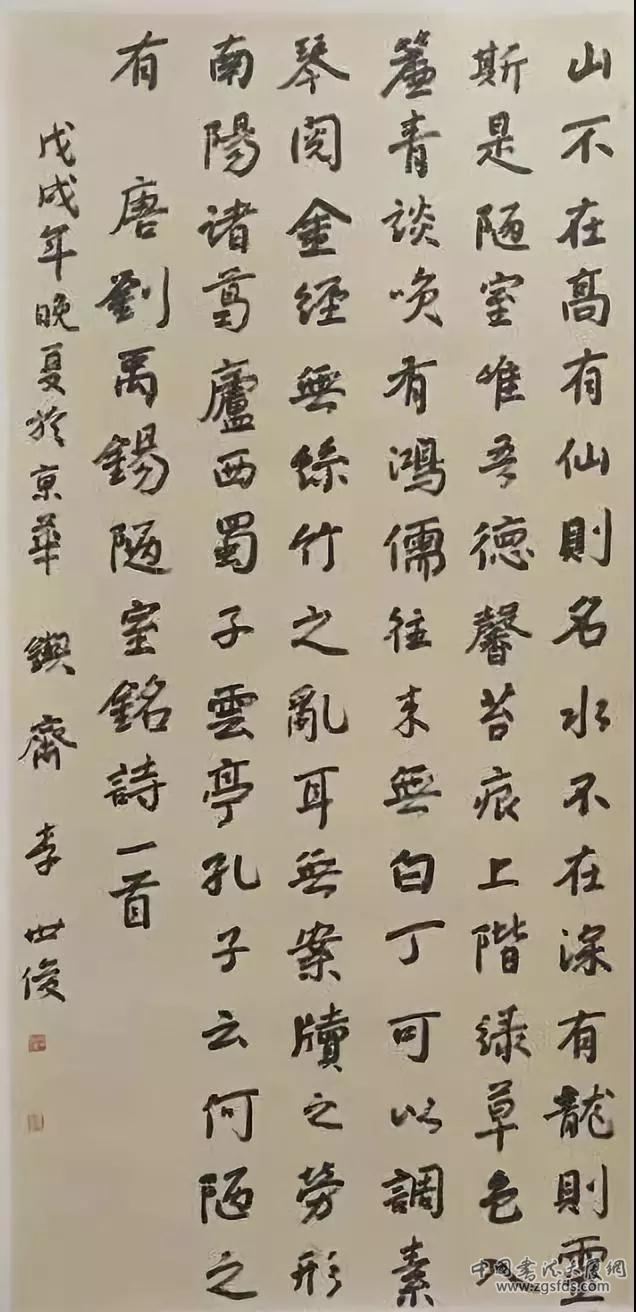 山不在高有仙則名水不在深有龍則靈
斯是陋室唯吾德馨苔痕上階緑草色入
簾青談唤有鴻儒往来無白丁可以調素
琴閲金經無絲竹之亂耳無案牘之勞形
南陽诸葛廬西蜀子雲亭孔子云何陋之
有 唐劉禹錫陋室銘詩一首
戊戌年晚夏於京華 鍥齋 李世俊
中国书法大厦網
www.zgsfds.com